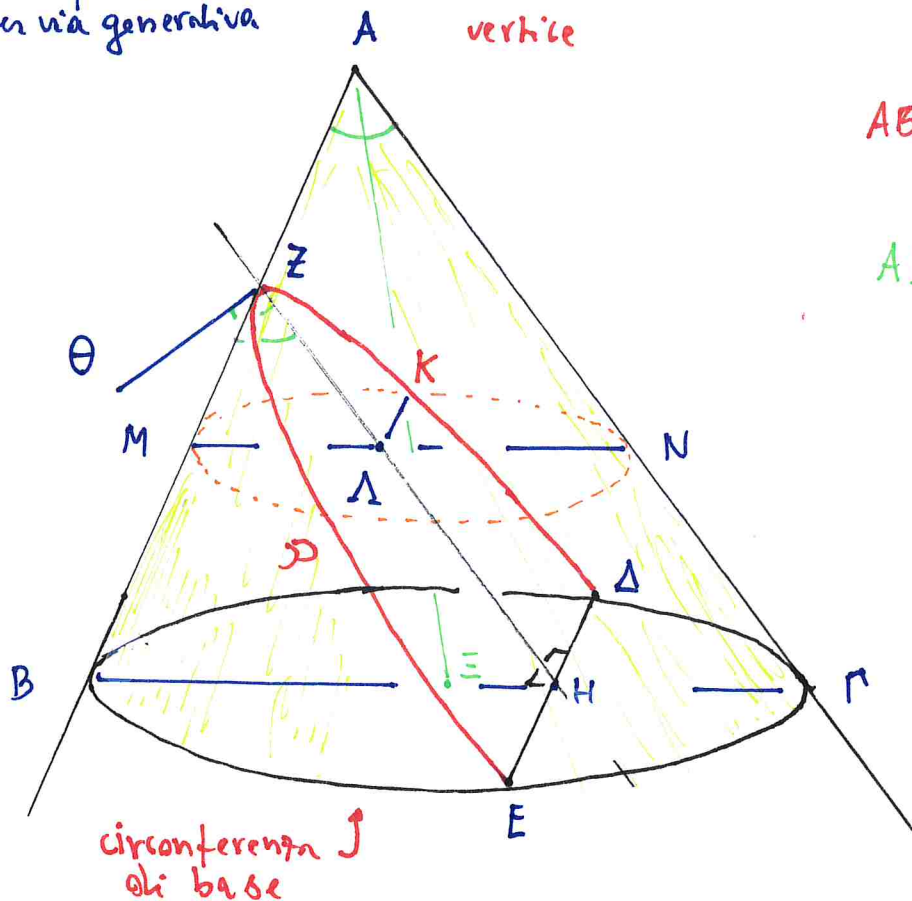 via generativa
A
vertice
AB
A
Z
Θ
K
M
N
Λ
Δ
B
Ξ
H
Γ
E
circonferenza
di base